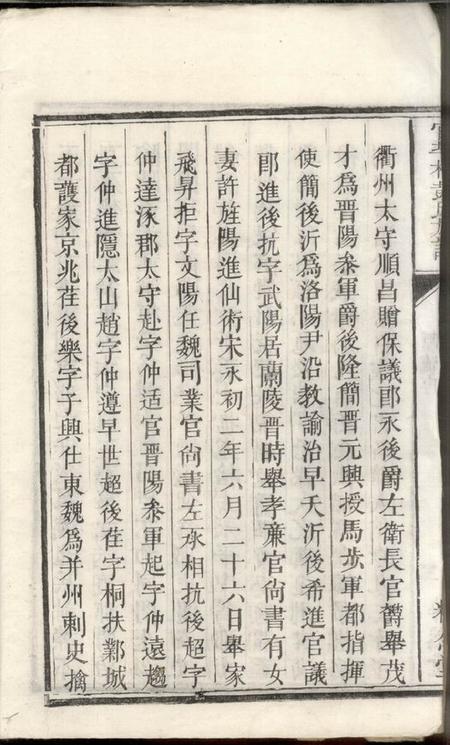 衢州太守順昌贈保議郎永後爵左衛長官爵舉茂
才爲晋陽叅軍爵後隆簡晋元興授馬步軍都指揮
使簡後沂爲洛陽尹沿教諭治早夭沂後希進官議
郎進後抗字武陽居蘭陵晋時舉孝亷官尙書有女
妻許旌陽進仙術宋永初二年六月二十六日舉家
飛昇拒字文陽任魏司業官尙書左丞相抗後超字
仲達涿郡太守赴字仲适官晋陽叅軍起字仲遠趨
字仲進隱太山趙字仲遵早世超後荏字桐扶鄴城
都護家京兆荏後樂字子興仕東魏爲并州刺史擒